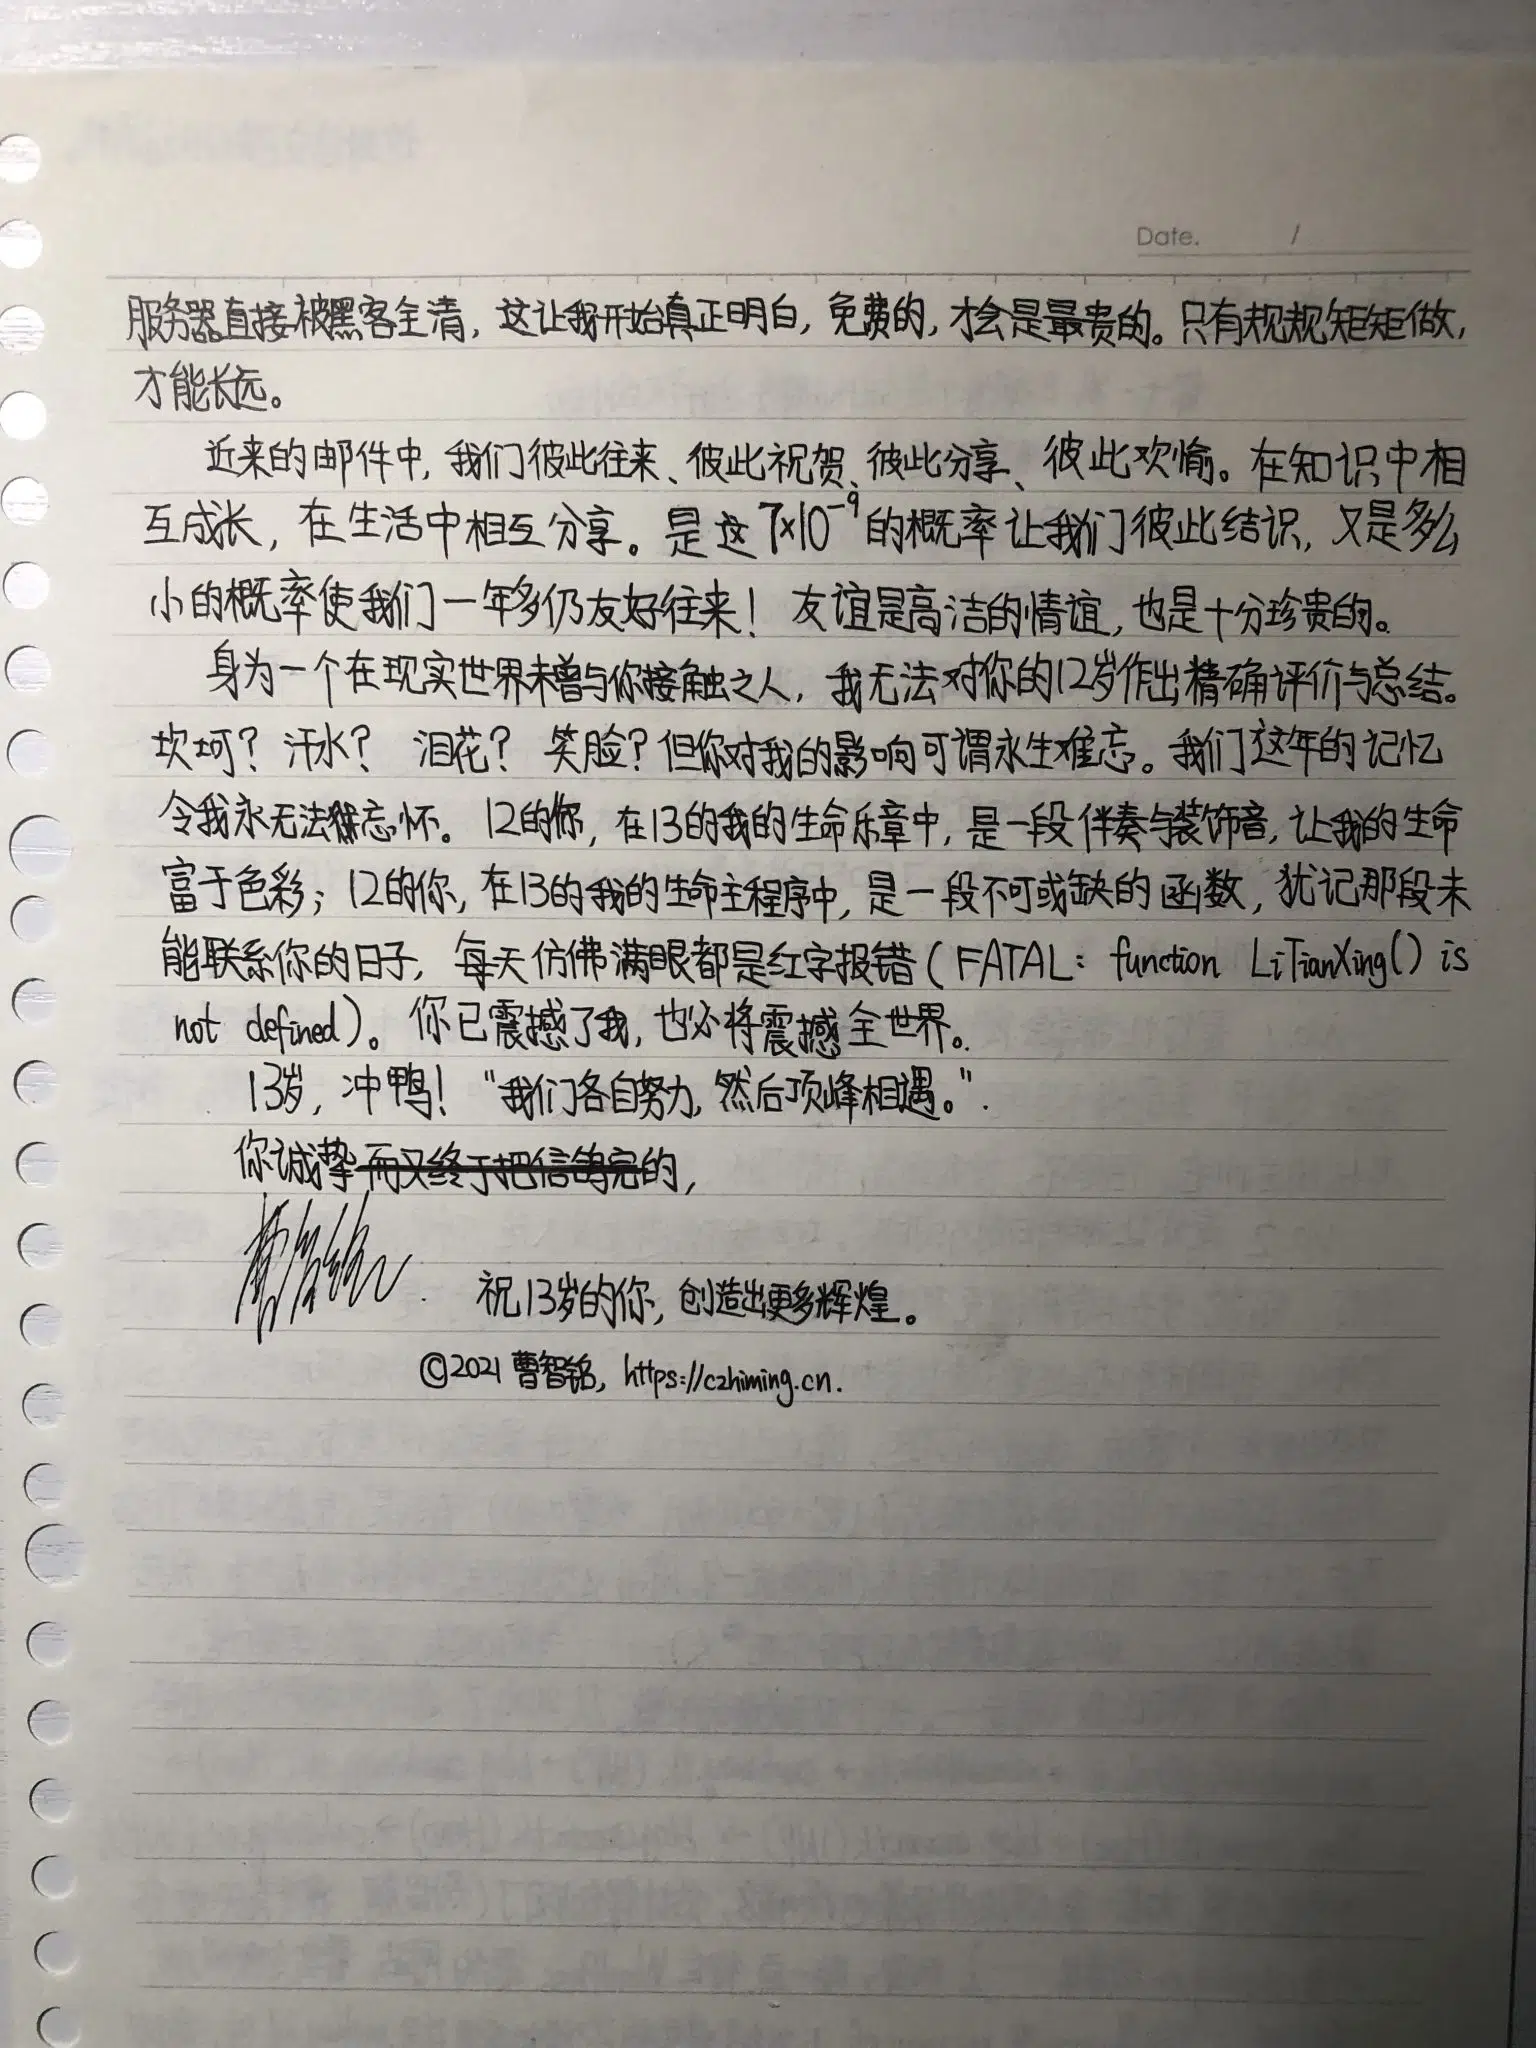 Date. /
服务器直接被黑客全清，这让我开始真正明白，免费的，才会是最贵的。只有规规矩矩做，
才能长远。
近来的邮件中，我们彼此往来、彼此祝贺、彼此分享、彼此欢愉。在知识中相
互成长，在生活中相互分享。是这7×10⁻⁹的概率让我们彼此结识，又是多么
小的概率使我们一年多仍友好往来！友谊是高洁的情谊，也是十分珍贵的。
身为一个在现实世界未曾与你接触之人，我无法对你的12岁作出精确评价与总结。
坎坷？汗水？泪花？笑脸？但你对我的影响可谓永生难忘。我们这年的记忆
令我永无法忘怀。12的你，在13的我的生命乐章中，是一段伴奏与装饰音，让我的生命
富于色彩；12的你，在13的我的生命主程序中，是一段不可或缺的函数，犹记那段未
能联系你的日子，每天仿佛满眼都是红字报错（FATAL: function LiTianXing() is
not defined）。你已震撼了我，也必将震撼全世界。
13岁，冲鸭！“我们各自努力，然后顶峰相遇。”.
你诚挚而又终于把信鸽完的，
曹智铭.
祝13岁的你，创造出更多辉煌。
©2021 曹智铭, https://czhiming.cn.